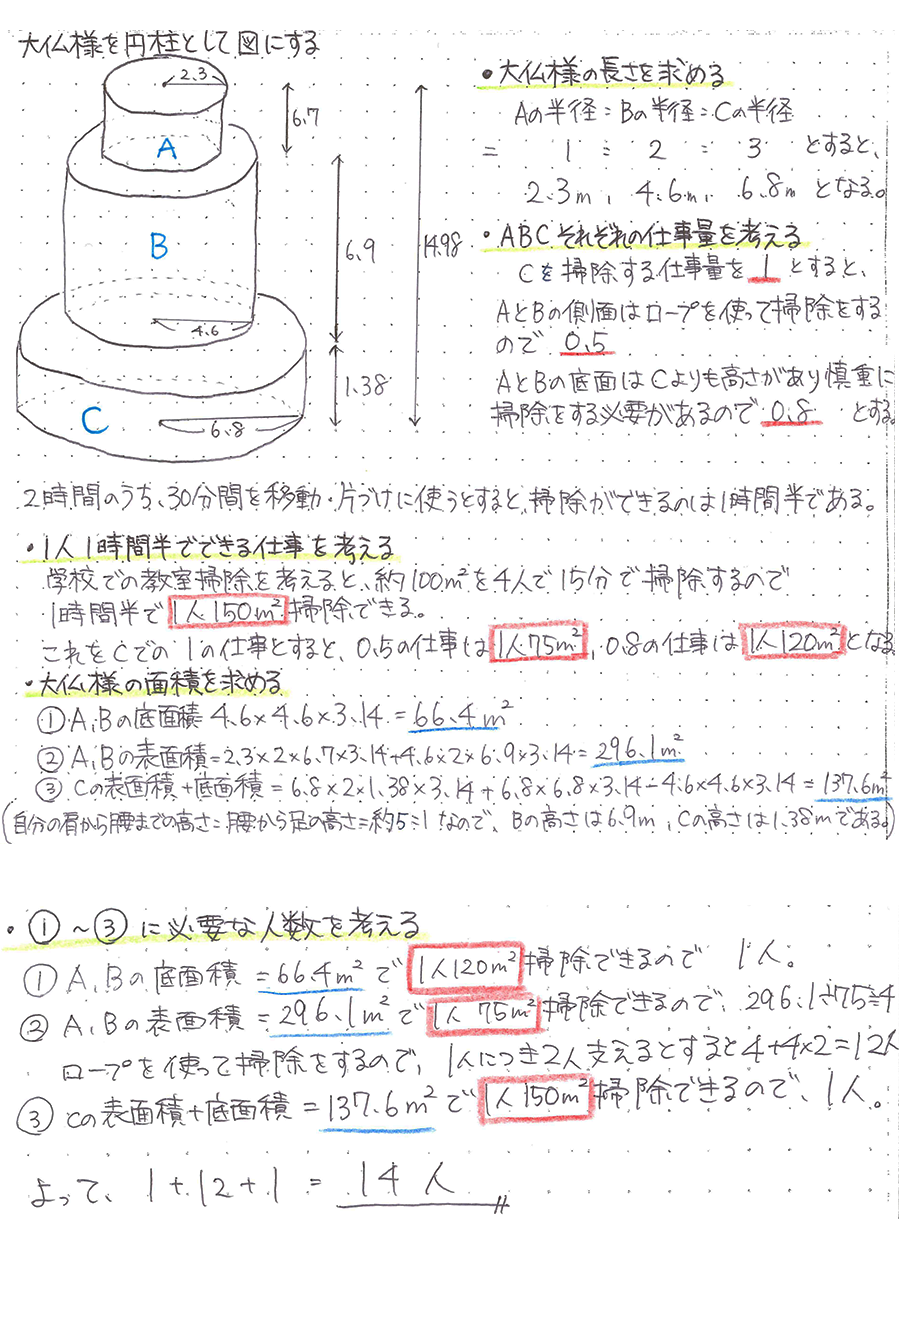 大仏様を円柱として図にする
2.3
6.7
A
B
6.9
14.98
4.6
1.38
C
6.8
・大仏様の長さを求める
Aの半径:Bの半径:Cの半径
= 1 : 2 : 3 とすると、
2.3m, 4.6m, 6.8m となる。
・ABCそれぞれの仕事量を考える
Cを掃除する仕事量を 1 とすると、
AとBの側面はロープを使って掃除をする
ので 0.5
AとBの底面はCよりも高さがあり慎重に
掃除をする必要があるので 0.8 とする。
2時間のうち、30分間を移動・片づけに使うとすると、掃除ができるのは1時間半である。
・1人1時間半でできる仕事を考える
学校での教室掃除を考えると、約100m²を4人で15分で掃除するので
1時間半で 1人150m² 掃除できる。
これをCでの1の仕事とすると、0.5の仕事は 1人75m², 0.8の仕事は 1人120m² となる
・大仏様の面積を求める
①A,Bの底面積 4.6×4.6×3.14=66.4m²
②A,Bの表面積=2.3×2×6.7×3.14+4.6×2×6.9×3.14=296.1m²
③Cの表面積+底面積=6.8×2×1.38×3.14+6.8×6.8×3.14-4.6×4.6×3.14=137.6m²
(自分の肩から腰までの高さ:腰から足の高さ=約5:1なので、Bの高さは6.9m,Cの高さは1.38mである。)
・①~③に必要な人数を考える
①A,Bの底面積=66.4m²で 1人120m² 掃除できるので 1人。
②A,Bの表面積=296.1m²で 1人75m² 掃除できるので、296.1÷75≒4
ロープを使って掃除をするので、1人につき2人支えるとすると4+4×2=12人
③Cの表面積+底面積=137.6m²で 1人150m² 掃除できるので、1人。
よって、1+12+1=14人